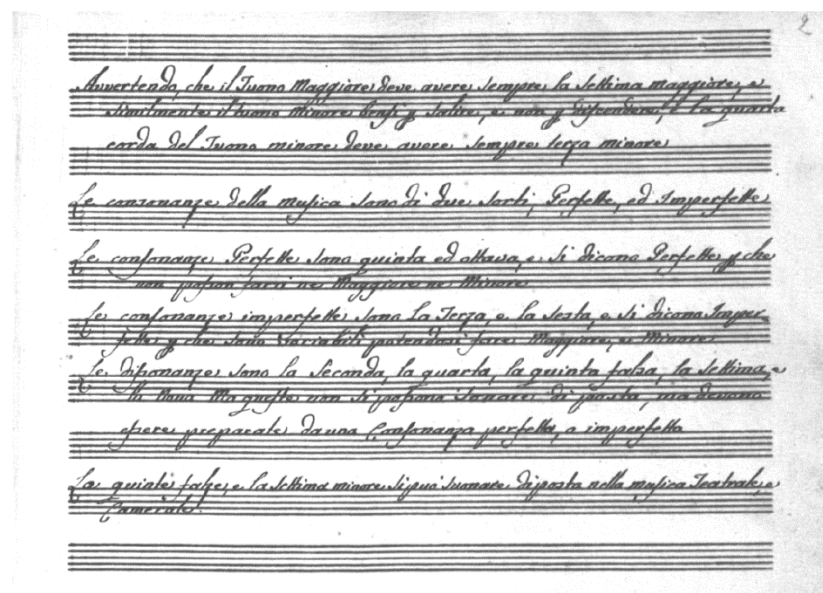 2
Avvertendo, che il Tuono Maggiore deve avere sempre la Settima maggiore, e
similmente il tuono Minore bensì p salire, e non p discendere, e la quarta
corda del Tuono minore deve avere sempre terza minore
Le consonanze della musica sono di due sorti, Perfette, ed Imperfette
Le consonanze Perfette sono quinta ed ottava, e si dicono Perfette p che
non posson farsi ne Maggiore ne Minore
Le consonanze imperfette sono la Terza, e la sesta, e si dicono Imper-
fette p che sono Variabili potendosi fare Maggiore, e Minore
Le dissonanze sono la Seconda, la quarta, la quinta falsa, la settima, e
la Nona Ma queste non si possono sonare di posta, ma devono
essere preparate da una Consonanza perfetta, o imperfetta
La quinta falsa, e la settima minore si può suonare di posta nella musica Teatrale, e
Camerale.